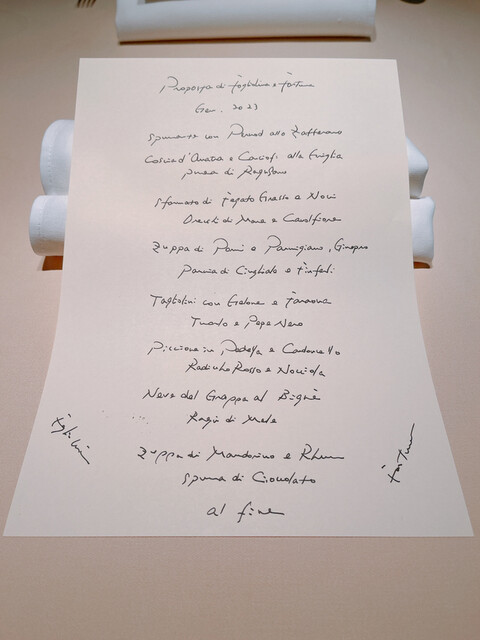 Proposta di Fogliolina e Fortuna
Gen. 2023
Spumante con Pernod allo Zafferano
Coscia d'Anatra e Carciofi alla Griglia
purea di
Sformato di Fegato Grasso e Noci
di Mare e Cavolfiore
Zuppa di Pane e Parmigiano, Ginepro
Pancia di Cinghiale e Finferli
Tagliolini con Gelone e Faraona
Tuorlo e Pepe Nero
Piccione in Padella e Cardoncello
Radicchio Rosso e Nocciola
Neve del Grappa al Bignè
Ragù di Mele
Zuppa di Mandarino e Rhum
Spuma di Cioccolato
al fine
Fortuna